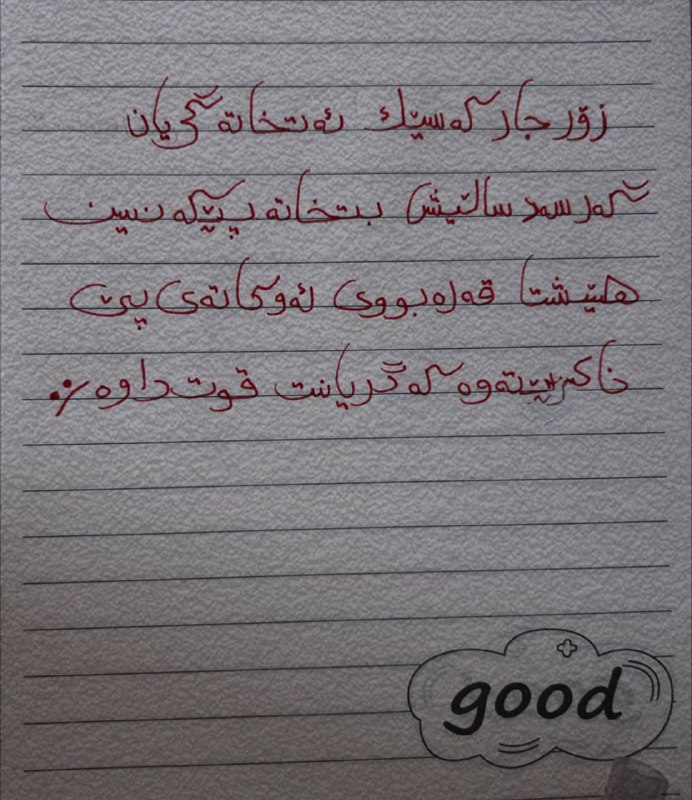 زۆر جار کەسێك ئەتخاتە گریان
گەر سەد ساڵیش بتخاتە پێکەنین
هێشتا قەرەبووی ئەوکاتەی پێ
ناکرێتەوە کە گریانت قوت داوە
good